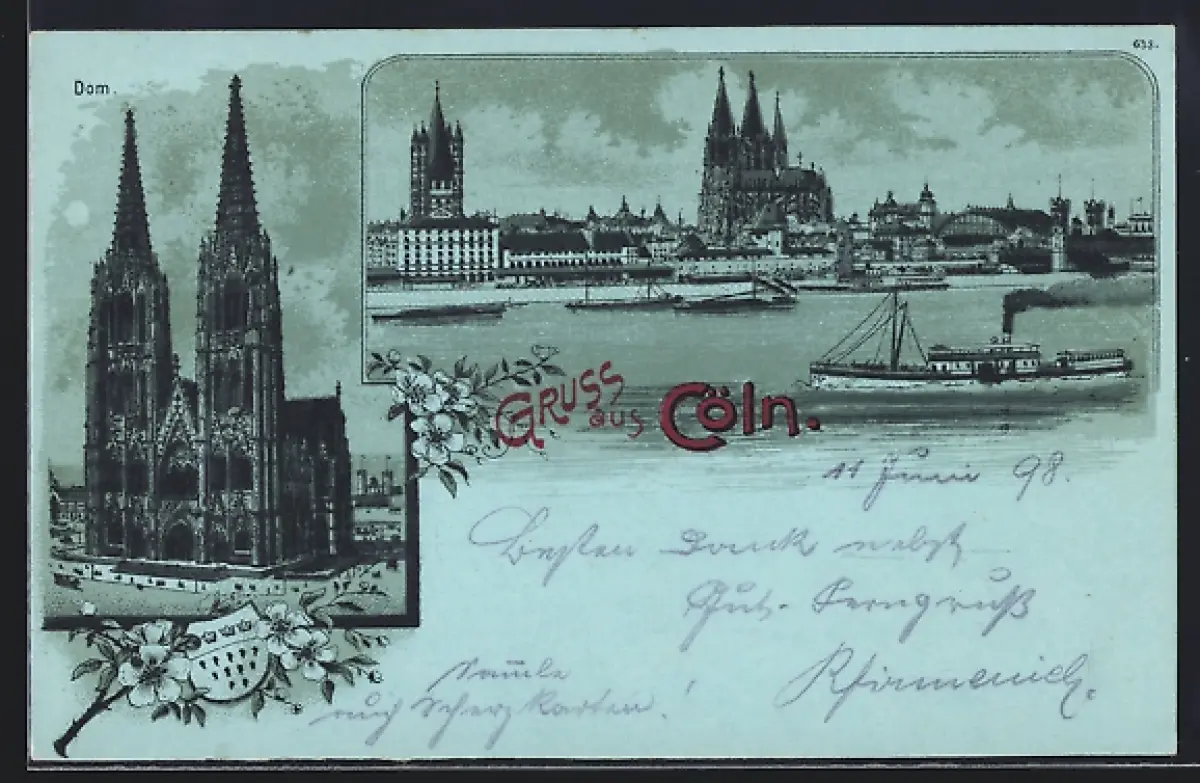 Dom.
638.
Gruss
aus Cöln.
11 Juni 98.
Besten Dank nebst
Gut- Ferngruß
Firmenich.
Sammle
auch Scherzkarten!